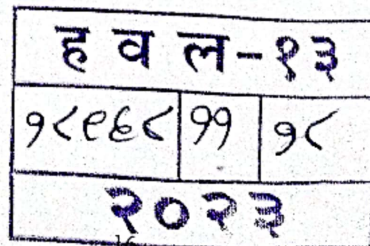 ह व ल-१३
१८९६८ ११ १८
२०२३